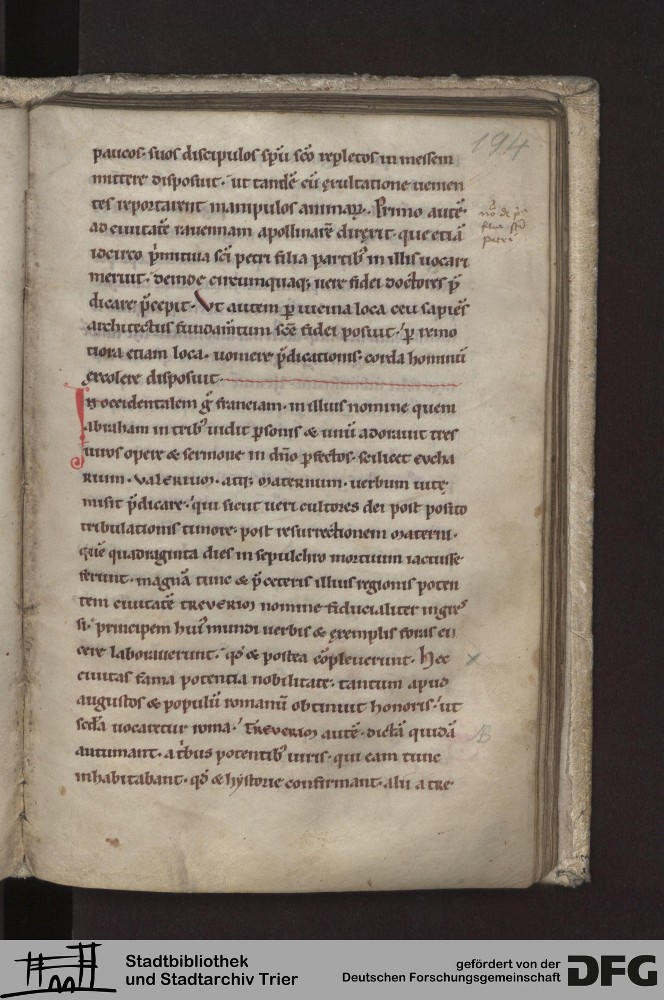 194
paucos· suos discipulos sp̄u sc̄o repletos in messem
mittere disposuit· ut tandē cū exultatione uemen
tes reportarent manipulos animaꝝ. Primo autē·
ad ciuitatē rauennam apollinarē direxit· que etiā
idcirco p̄mitiua sc̄i petri filia partib; in illis uocari
meruit· deinde circumquaq; uere fidei doctores p̄
dicare p̄cepit· Vt autem ꝑ uicina loca ceu sapiēs
architectus fundam̄tum sc̄e fidei posuit· ꝑ remo
tiora etiam loca· uomere p̄dicationis· corda hominū
excolere disposuit·
In occidentalem ḡ franciam· in illius nomine quem
abraham in trib; uidit ꝑsonis & unū adorauit tres
uiros opere & sermone in dn̄o ꝑfectos· scilicet eucha
rium· VALERIUM· atq; maternum· uerbum uitę
misit p̄dicare· qui sicut ueri cultores dei post posito
tribulationis timore· post resurrectionem materni·
quē quadraginta dies in sepulchro mortuum iacuisse
ferunt· magnā tunc & p̄ ceteris illius regionis poten
tem ciuitatē TREVERIM nomine fiducialiter ingres
si· principem hui᾿ mundi uerbis & exemplis foras ei
cere laborauerunt· qd̄ & postea cōpleuerunt· Hec
ciuitas fama potentia nobilitate· tantum apud
augustos & populū romanū obtinuit honoris· ut
secda uocaretur roma· TREVERIM autē· dictā quidā
autumant· a tribus potentib; uiris· qui eam tunc
inhabitabant· qd̄ & hystorie confirmant· alii a tre·
petri
Stadtbibliothek
und Stadtarchiv Trier
gefördert von der
Deutschen Forschungsgemeinschaft
DFG